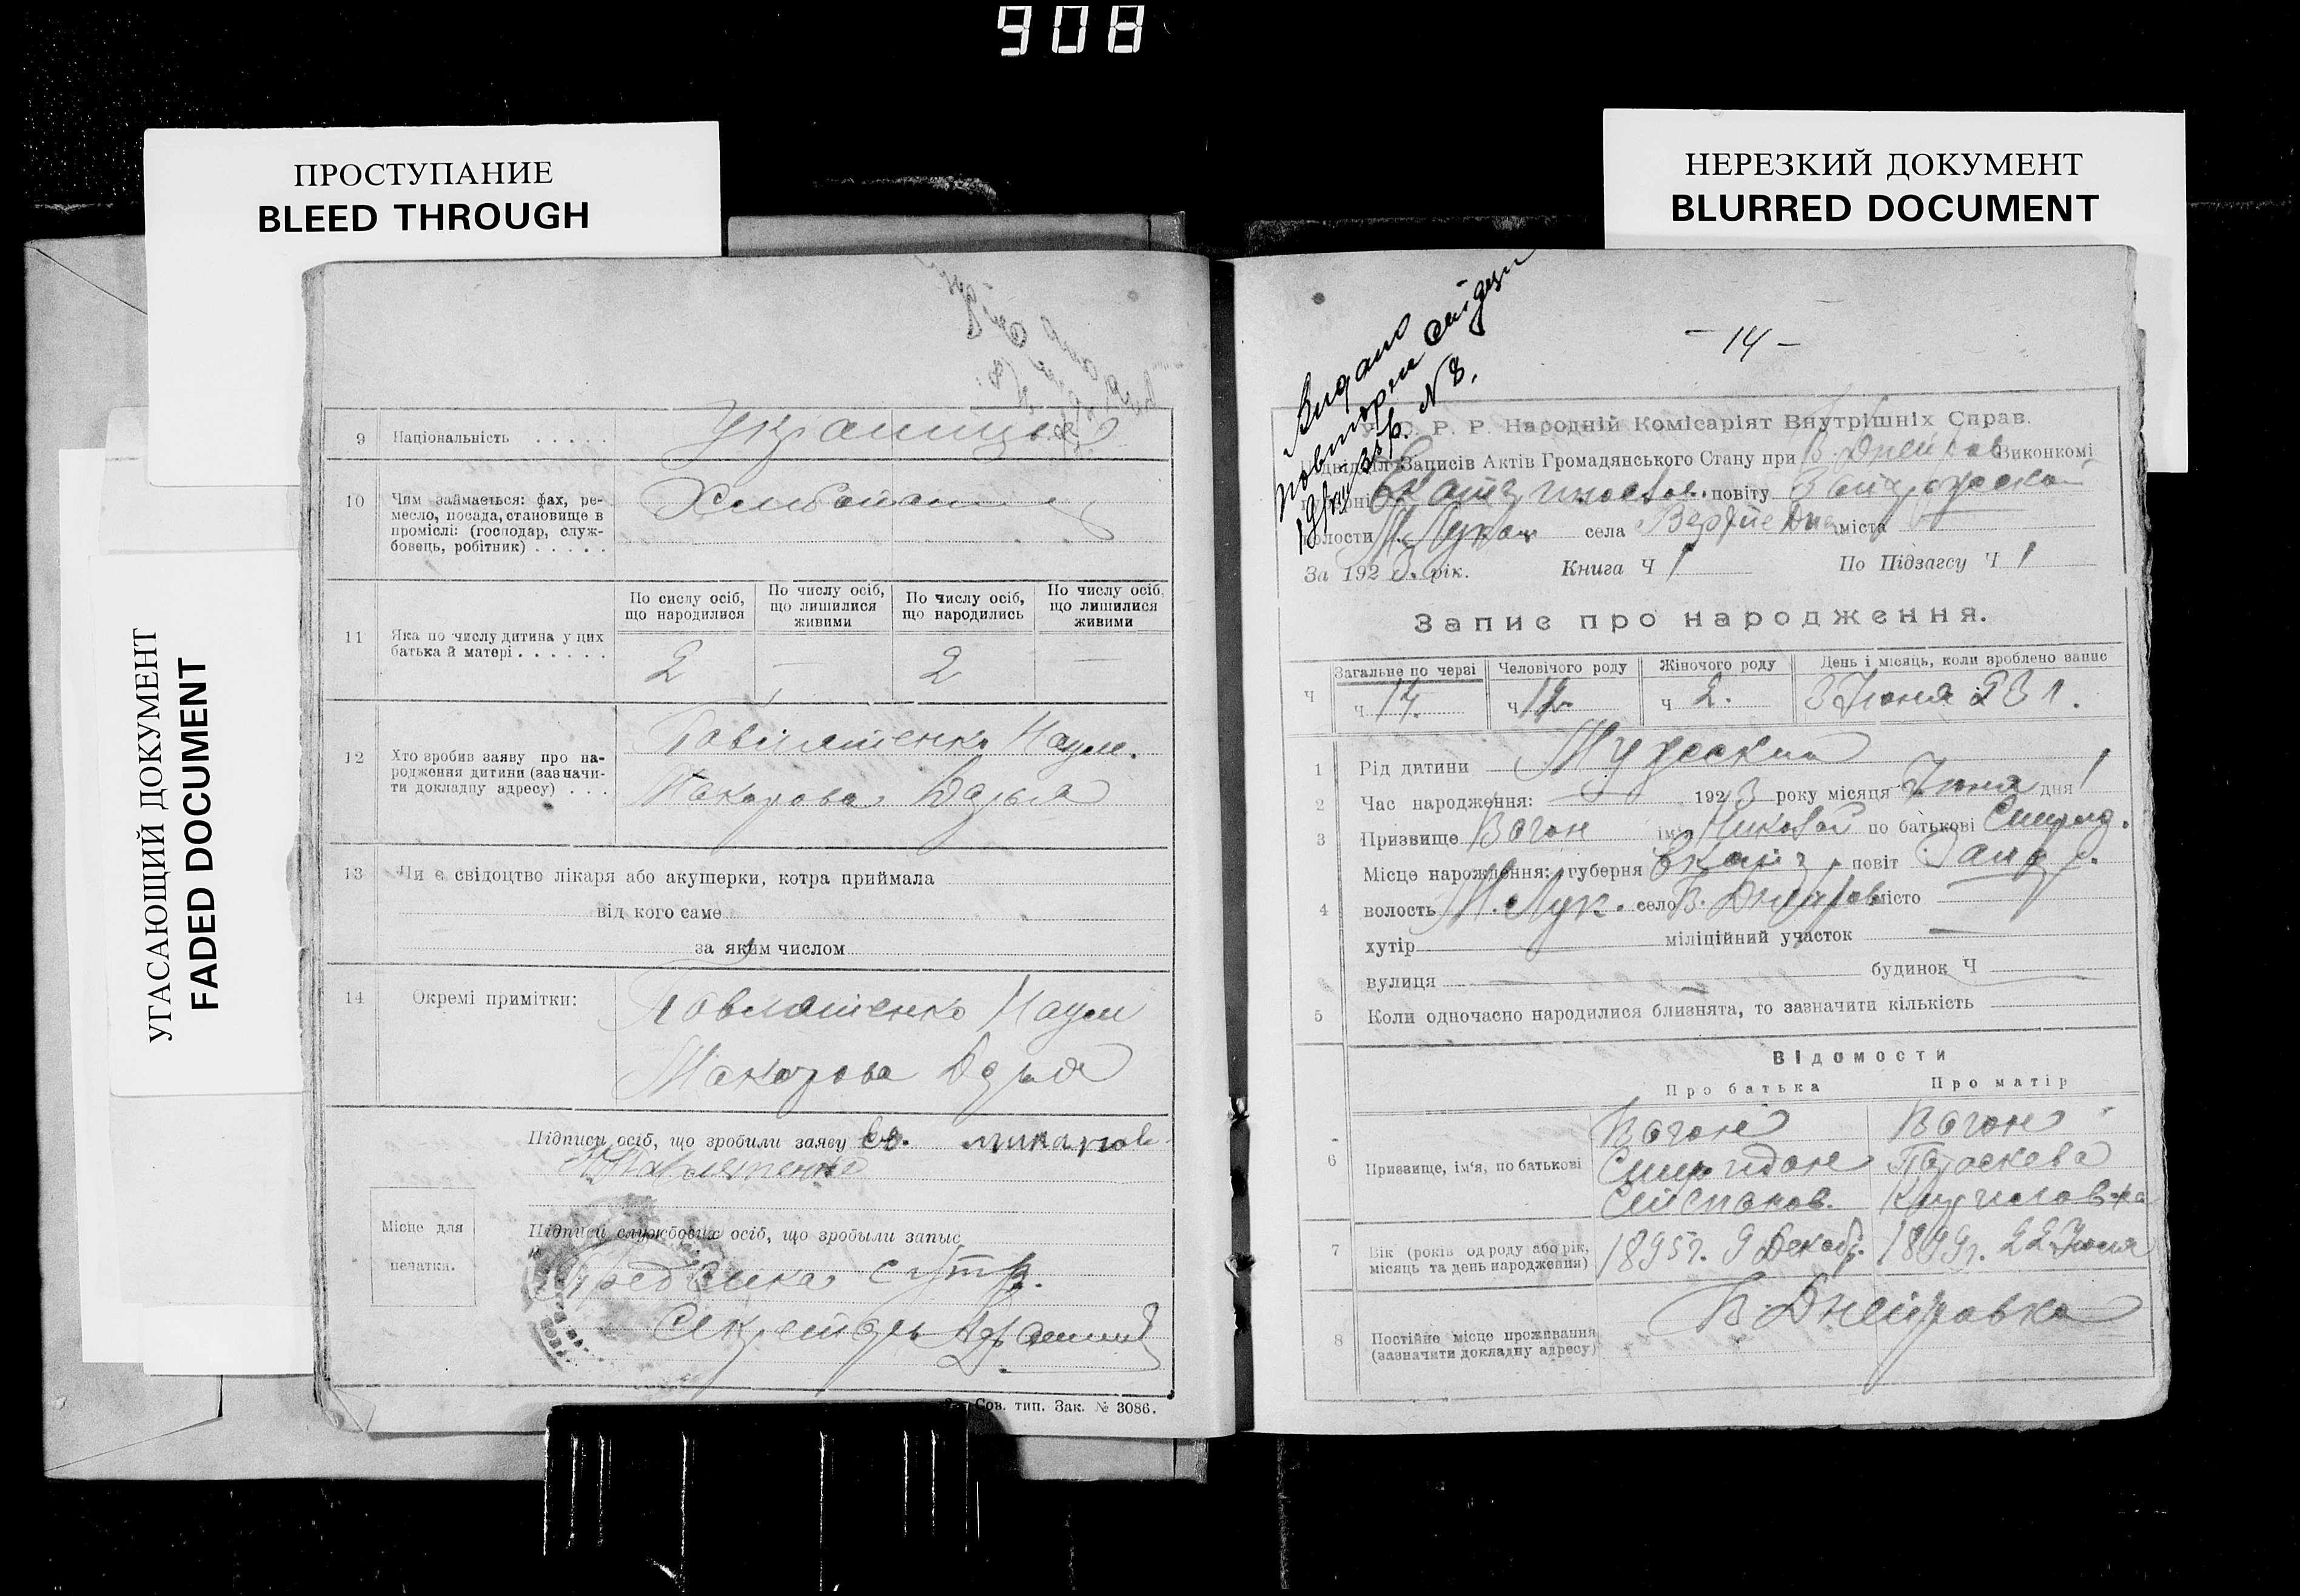 908
ПРОСТУПАНИЕ
BLEED THROUGH
НЕРЕЗКИЙ ДОКУМЕНТ
BLURRED DOCUMENT
УГАСАЮЩИЙ ДОКУМЕНТ
FADED DOCUMENT
9 Національність . . . . .
10 Чим займається: фах, ре-
месло, посада, становище в
промислі: (господар, служ-
бовець, робітник) . . . . .
11 Яка по числу дитина у цих
батька й матері . . . . . .
По числу осіб,
що народилися
По числу осіб,
що лишилися
живими
По числу осіб,
що народились
По числу осіб,
що лишилися
живими
2 — 2 —
12 Хто зробив заяву про на-
родження дитини (зазначи-
ти докладну адресу) . . .
Павляшенко Наум.
Макарова Дарья
13 Чи є свідоцтво лікаря або акушерки, котра приймала
від кого саме
за яким числом
14 Окремі примітки:
Павляшенко Наум
Макарова Дарья
Підписи осіб, що зробили заяву
Підписи службових осіб, що зробыли запыс
Місце для
печатки.
Секретарь
Сов. тип. Зак. № 3086.
Видано
повторне свідоц
N 8.
— 14 —
У. С. Р. Р. Народній Комісаріят Внутрішніх Справ.
Записів Актів Громадянського Стану при В. Днепров Виконкомі
Екатеринослав. повіту Запорожской
волости М. Лукаш села Верхне Дн міста —
За 1923. рік. Книга Ч 1 По Підзагсу Ч 1
Запис про народження.
Ч
Загальне по черзі Человічого роду Жіночого роду День і місяць, коли зроблено запис
ч 14. ч 12. ч 2. 3 Июня 231.
1 Рід дитини Мужский
2 Час народження: — 1923 року місяця Июня дня 1
3 Призвище Вагон ім'я Николай по батькові Спирид.
Місце народження: губерня Екатер. повіт Запор.
4 волость М. Лук. село В. Днепров місто —
хутір міліційний участок —
вулиця — будинок Ч
5 Коли одночасно народилися близнята, то зазначити кількість
Відомости
Про батька Про матір
6 Призвище, ім'я, по батькові
Вагон Вагон
Спиридон Параскева
Степанов. Кириловна
7 Вік (років од роду або рік,
місяць та день народження)
1895г. 9 Декабр. 1899г. 22 Июля
8 Постійне місце проживання
(зазначити докладну адресу)
В. Днепровка